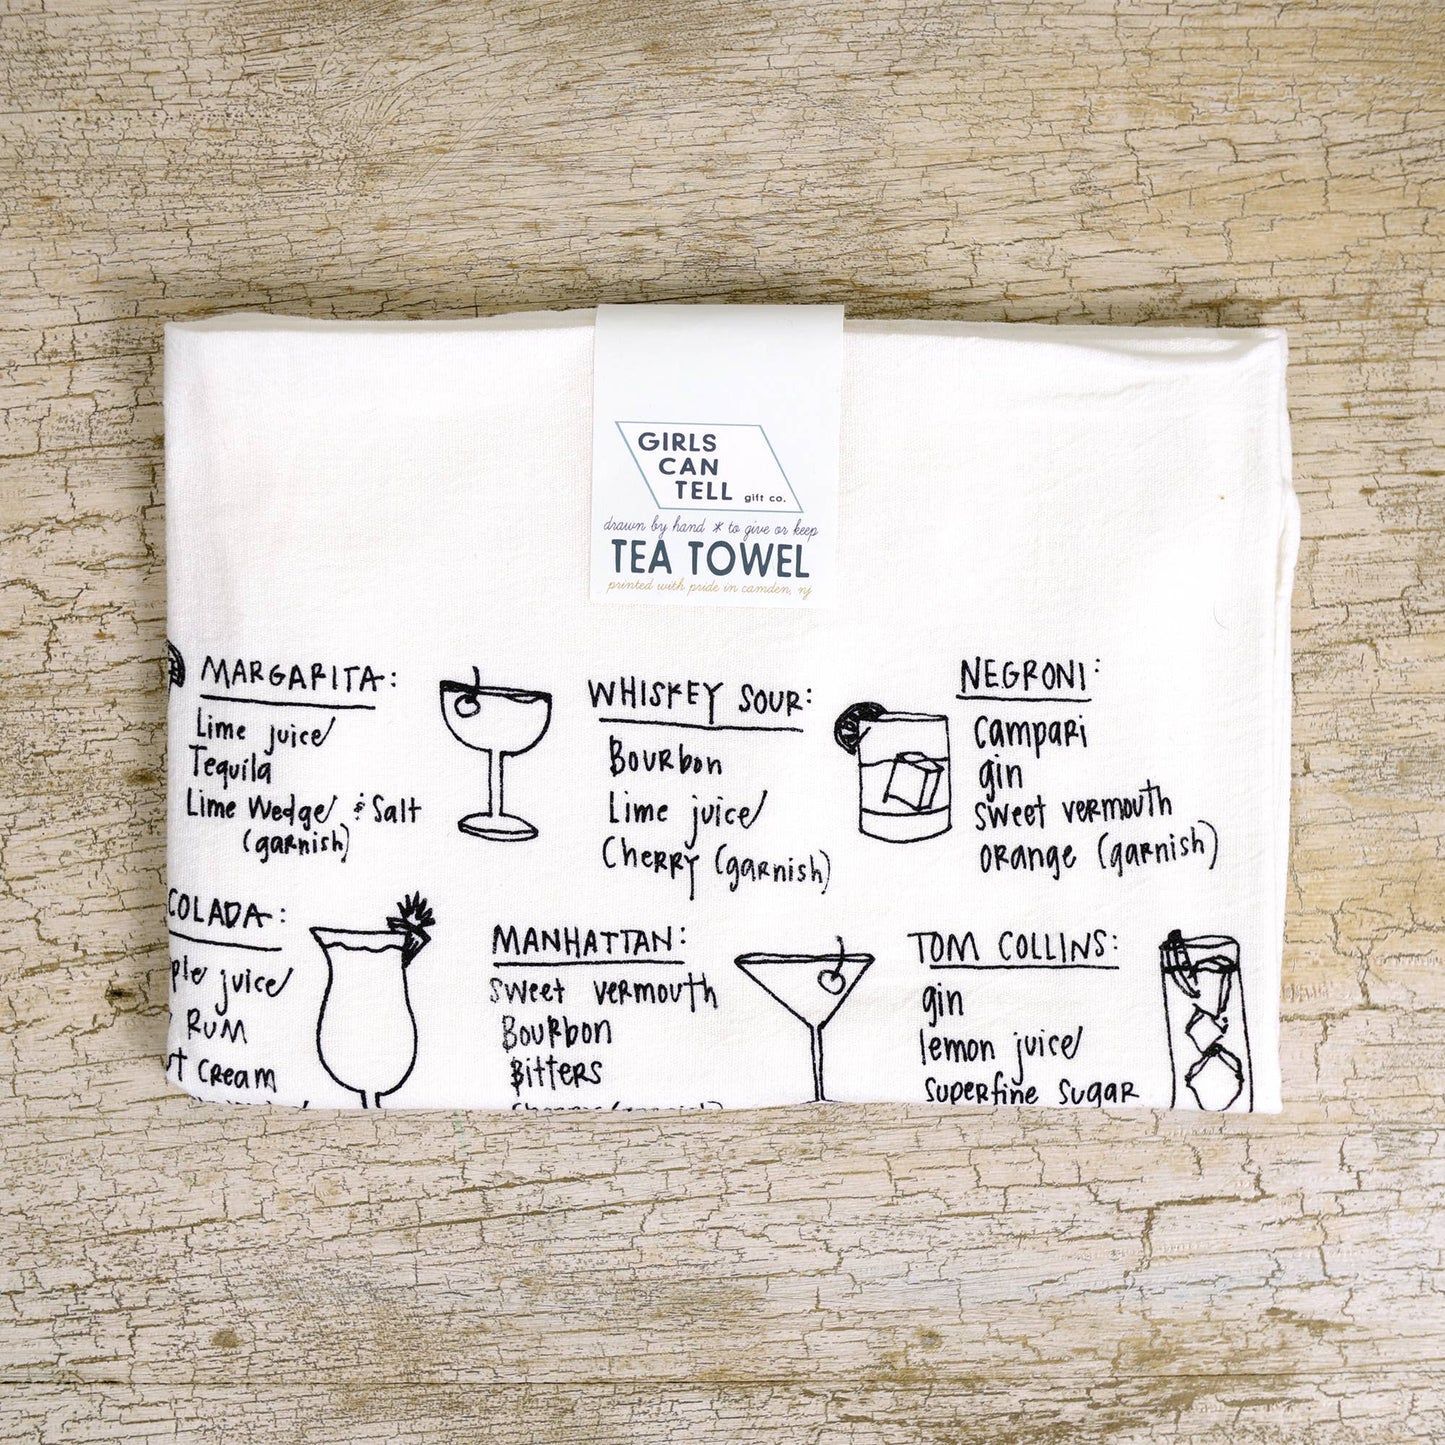 GIRLS
CAN
TELL gift co.
drawn by hand * to give or keep
TEA TOWEL
printed with pride in camden, nj
MARGARITA:
Lime juice
Tequila
Lime Wedge & Salt
(garnish)
WHISKEY SOUR:
Bourbon
Lime juice
Cherry (garnish)
NEGRONI:
Campari
gin
sweet vermouth
orange (garnish)
COLADA:
ple juice
Rum
t Cream
MANHATTAN:
sweet vermouth
Bourbon
Bitters
TOM COLLINS:
gin
lemon juice
superfine sugar